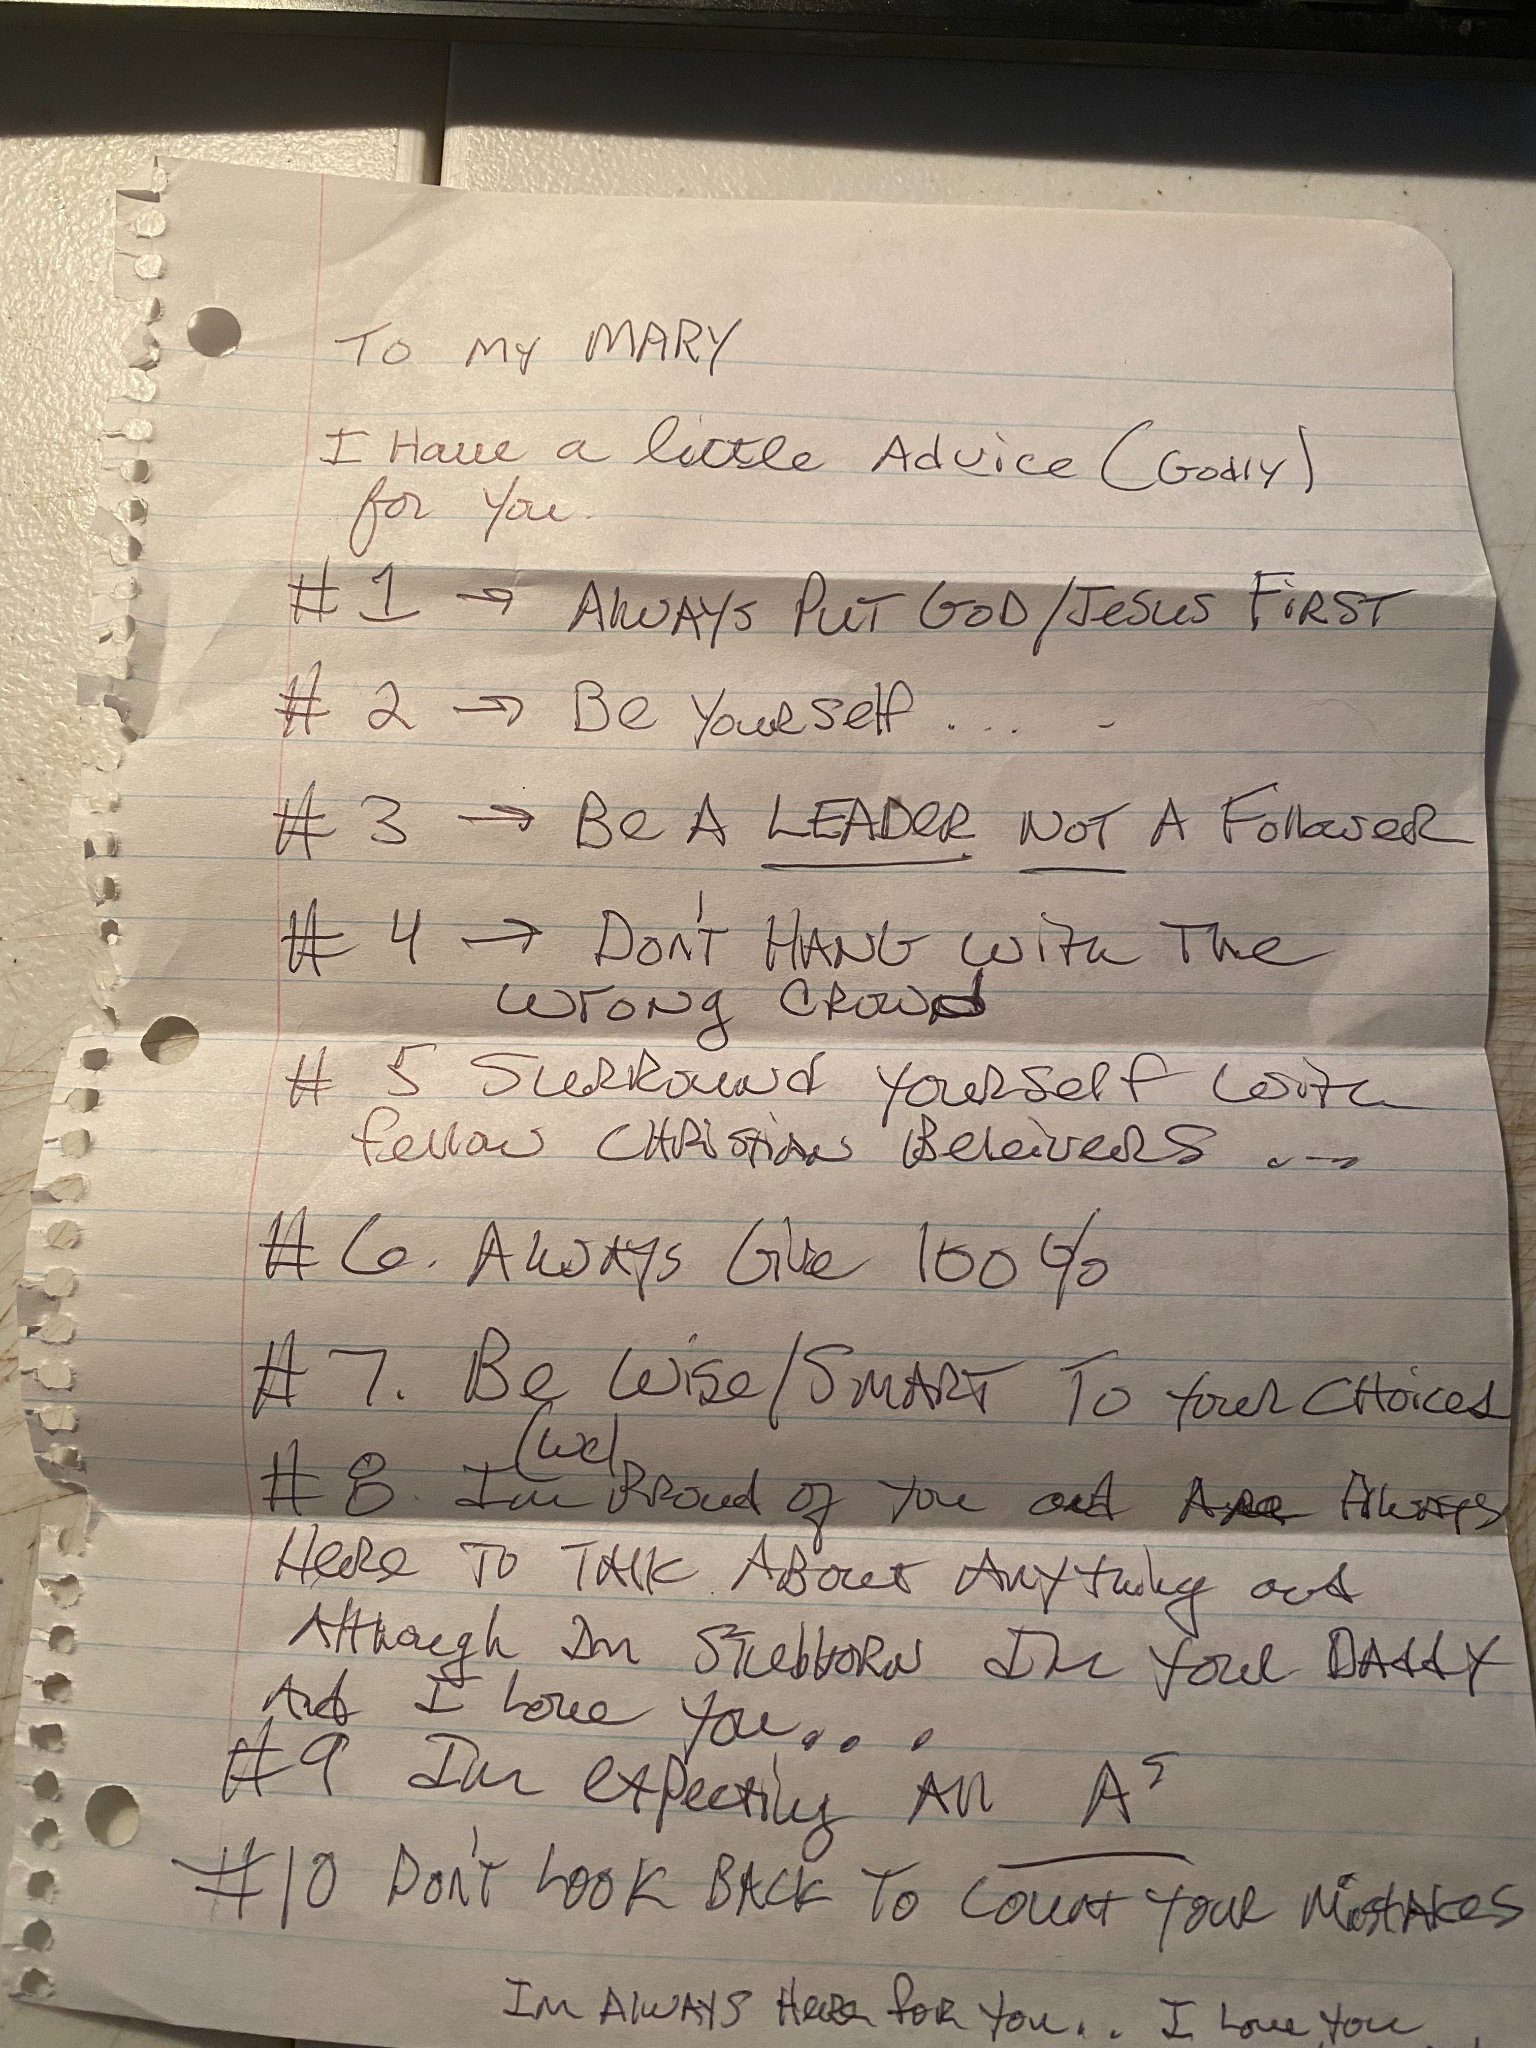 TO MY MARY
I Have a little Advice (Godly)
for you.
# 1 → Always Put GOD/Jesus First
# 2 → Be yourself . . . .
# 3 → Be A LEADER NOT A Follower
# 4 → Don't HANG with The
wrong Crowd
# 5 Surround yourself with
fellow CHRistian Beleivers ...
# 6. Always Give 100%
# 7. Be Wise/SMART To your CHoices
(we)
# 8. I'm Proud of you and Are Always
Here To TAlk About Anything and
Although Im Stubborn Im your DAddy
And I love you. . . .
#9 Im expecting An A's
#10 Don't Look BACK To Count your MistAkes
Im AlwAYS Here for you... I Love you